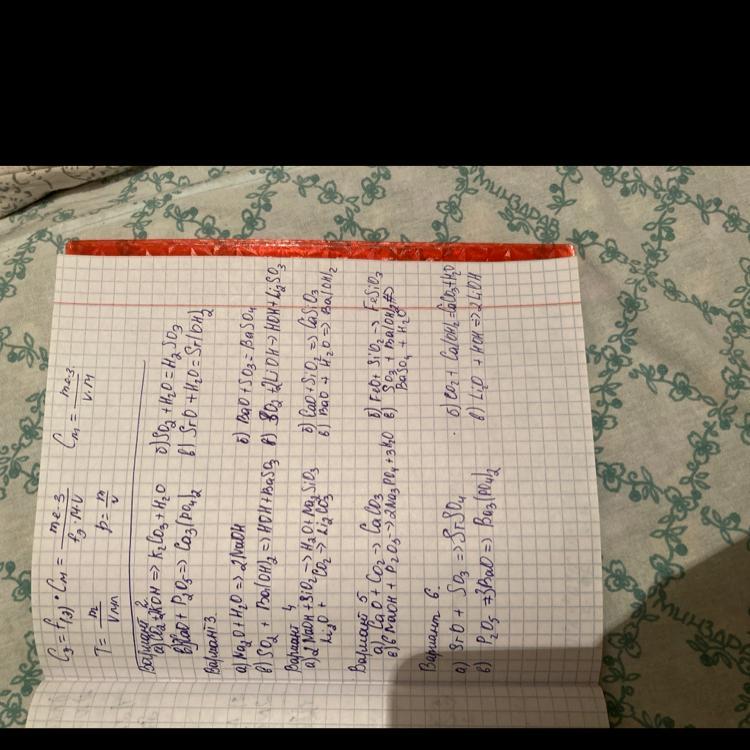 Cэ = f(э) · Cм = me·з / fэ · M·V   Cm = me·з / V·M
T = m / Vмл   p = m / v
Вариант 2.
а) CO2 + 2KOH => K2CO3 + H2O   б) SO2 + H2O = H2SO3
CaO + P2O5 => Ca3(PO4)2   в) SrO + H2O = Sr(OH)2
Вариант 3.
а) Na2O + H2O => 2NaOH   б) BaO + SO3 = BaSO4
в) SO2 + Ba(OH)2 => HOH + BaSO3   в) SO2 + 2LiOH => HOH + Li2SO3
Вариант 4
а) 2NaOH + SiO2 -> H2O + Na2SiO3   б) CaO + SiO2 => CaSiO3
Li2O + CO2 -> Li2CO3   в) BaO + H2O => Ba(OH)2
Вариант 5
а) CaO + CO2 -> CaCO3   б) FeO + SiO2 -> FeSiO3
в) 6NaOH + P2O5 -> 2Na3PO4 + 3H2O   в) SO3 + Ba(OH)2 =>
BaSO4 + H2O
Вариант 6.
а) SrO + SO3 => SrSO4   б) CO2 + Ca(OH)2 = CaCO3 + H2O
в) P2O5 + 3BaO => Ba3(PO4)2   в) Li2O + HOH => 2LiOH
МИНЗДРАВ
МИНЗДРАВ